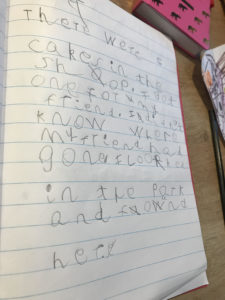 There were 5
cakes in the
shop. I got
one for my
friend. I didnt
know where
my friend had
gone I looked
in the Park
and fwond
here